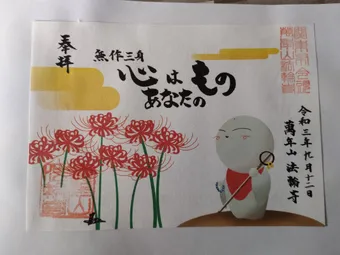 奉拝
無作三身
心は
あなたの
もの
令和三年九月十二日
萬年山 法輪寺